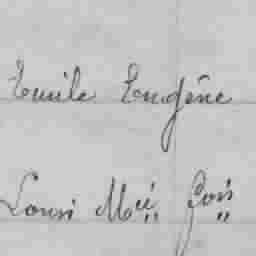 Emile Eugène
Louis M^ie f^ois